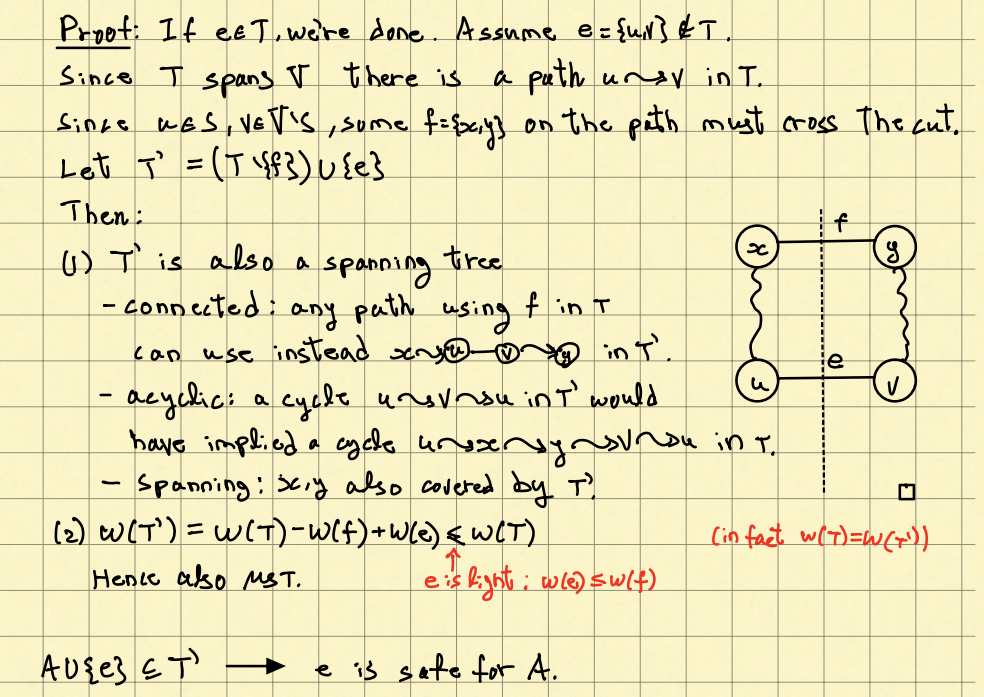 Proof: If e∈T, we're done. Assume e={u,v}∉T.
Since T spans V there is a path u⇝v in T.
Since u∈S, v∈V\S, some f={x,y} on the path must cross the cut.
Let T' = (T\{f})∪{e}
Then:
(1) T' is also a spanning tree
- connected: any path using f in T
can use instead x⇝u—v⇝y in T'.
- acyclic: a cycle u⇝v⇝u in T' would
have implied a cycle u⇝x⇝y⇝v⇝u in T.
- spanning: x,y also covered by T'.
f
x y
e
u v
(2) w(T') = w(T)-w(f)+w(e) ≤ w(T)
(in fact w(T)=w(T'))
Hence also MST.
↑
e is light: w(e)≤w(f)
A∪{e} ⊆ T' → e is safe for A.